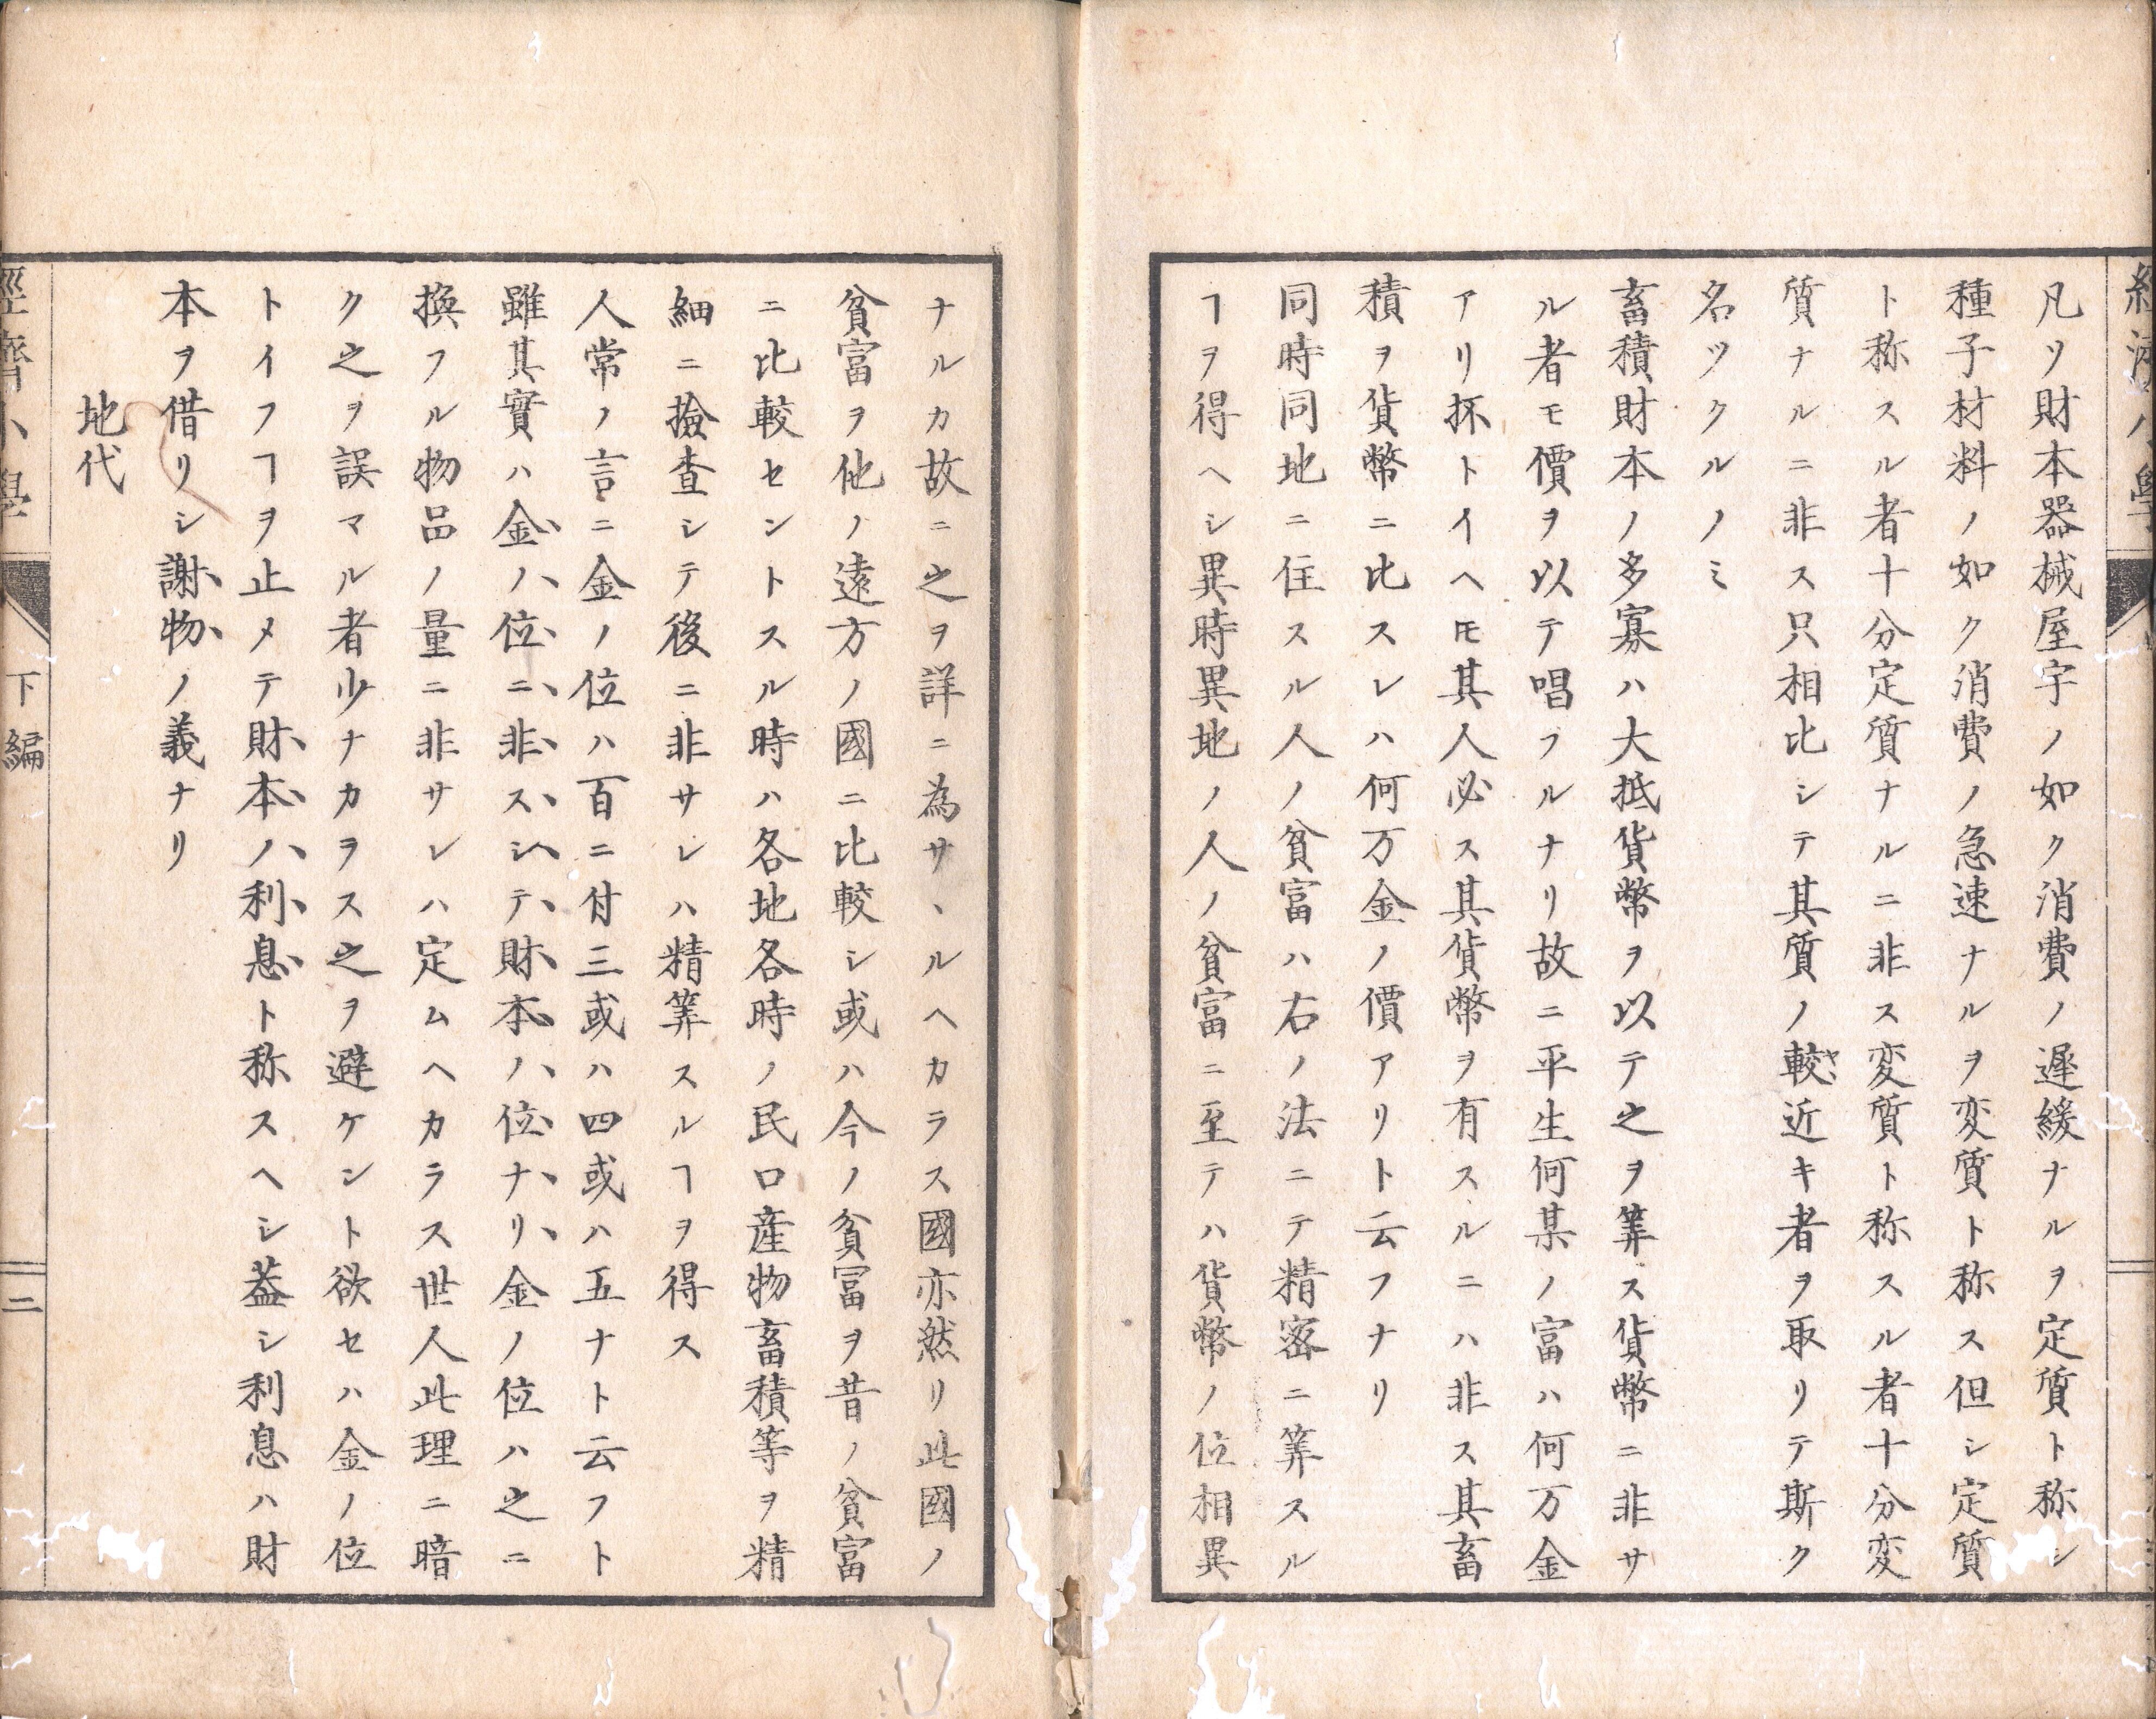 凡ソ財本器械屋宇ノ如ク消費ノ遲緩ナルヲ定質ト称シ
種子材料ノ如ク消費ノ急速ナルヲ変質ト称ス但シ定質
ト称スル者十分定質ナルニ非ス変質ト称スル者十分変
質ナルニ非ス只相比シテ其質ノ較近キ者ヲ取リテ斯ク
名ツクルノミ
畜積財本ノ多寡ハ大抵貨幣ヲ以テ之ヲ筭ス貨幣ニ非サ
ル者モ價ヲ以テ唱フルナリ故ニ平生何某ノ富ハ何万金
アリ抔トイヘ𪜈其人必ス其貨幣ヲ有スルニハ非ス其畜
積ヲ貨幣ニ比スレハ何万金ノ價アリト云フナリ
同時同地ニ住スル人ノ貧富ハ右ノ法ニテ精密ニ筭スル
ヿヲ得ヘシ異時異地ノ人ノ貧富ニ至テハ貨幣ノ位相異
ナルカ故ニ之ヲ詳ニ為サヽルヘカラス國亦然リ此國ノ
貧富ヲ他ノ遠方ノ國ニ比較シ或ハ今ノ貧富ヲ昔ノ貧富
ニ比較セントスル時ハ各地各時ノ民口産物畜積等ヲ精
細ニ撿査シテ後ニ非サレハ精筭スルヿヲ得ス
人常ノ言ニ金ノ位ハ百ニ付三或ハ四或ハ五ナト云フト
雖其實ハ金ノ位ニ非スシテ財本ノ位ナリ金ノ位ハ之ニ
換フル物品ノ量ニ非サレハ定ムヘカラス世人此理ニ暗
ク之ヲ誤マル者少ナカラス之ヲ避ケント欲セハ金ノ位
トイフヿヲ止メテ財本ノ利息ト称スヘシ葢シ利息ハ財
本ヲ借リシ謝物ノ義ナリ
地代
經濟小學
下編
二